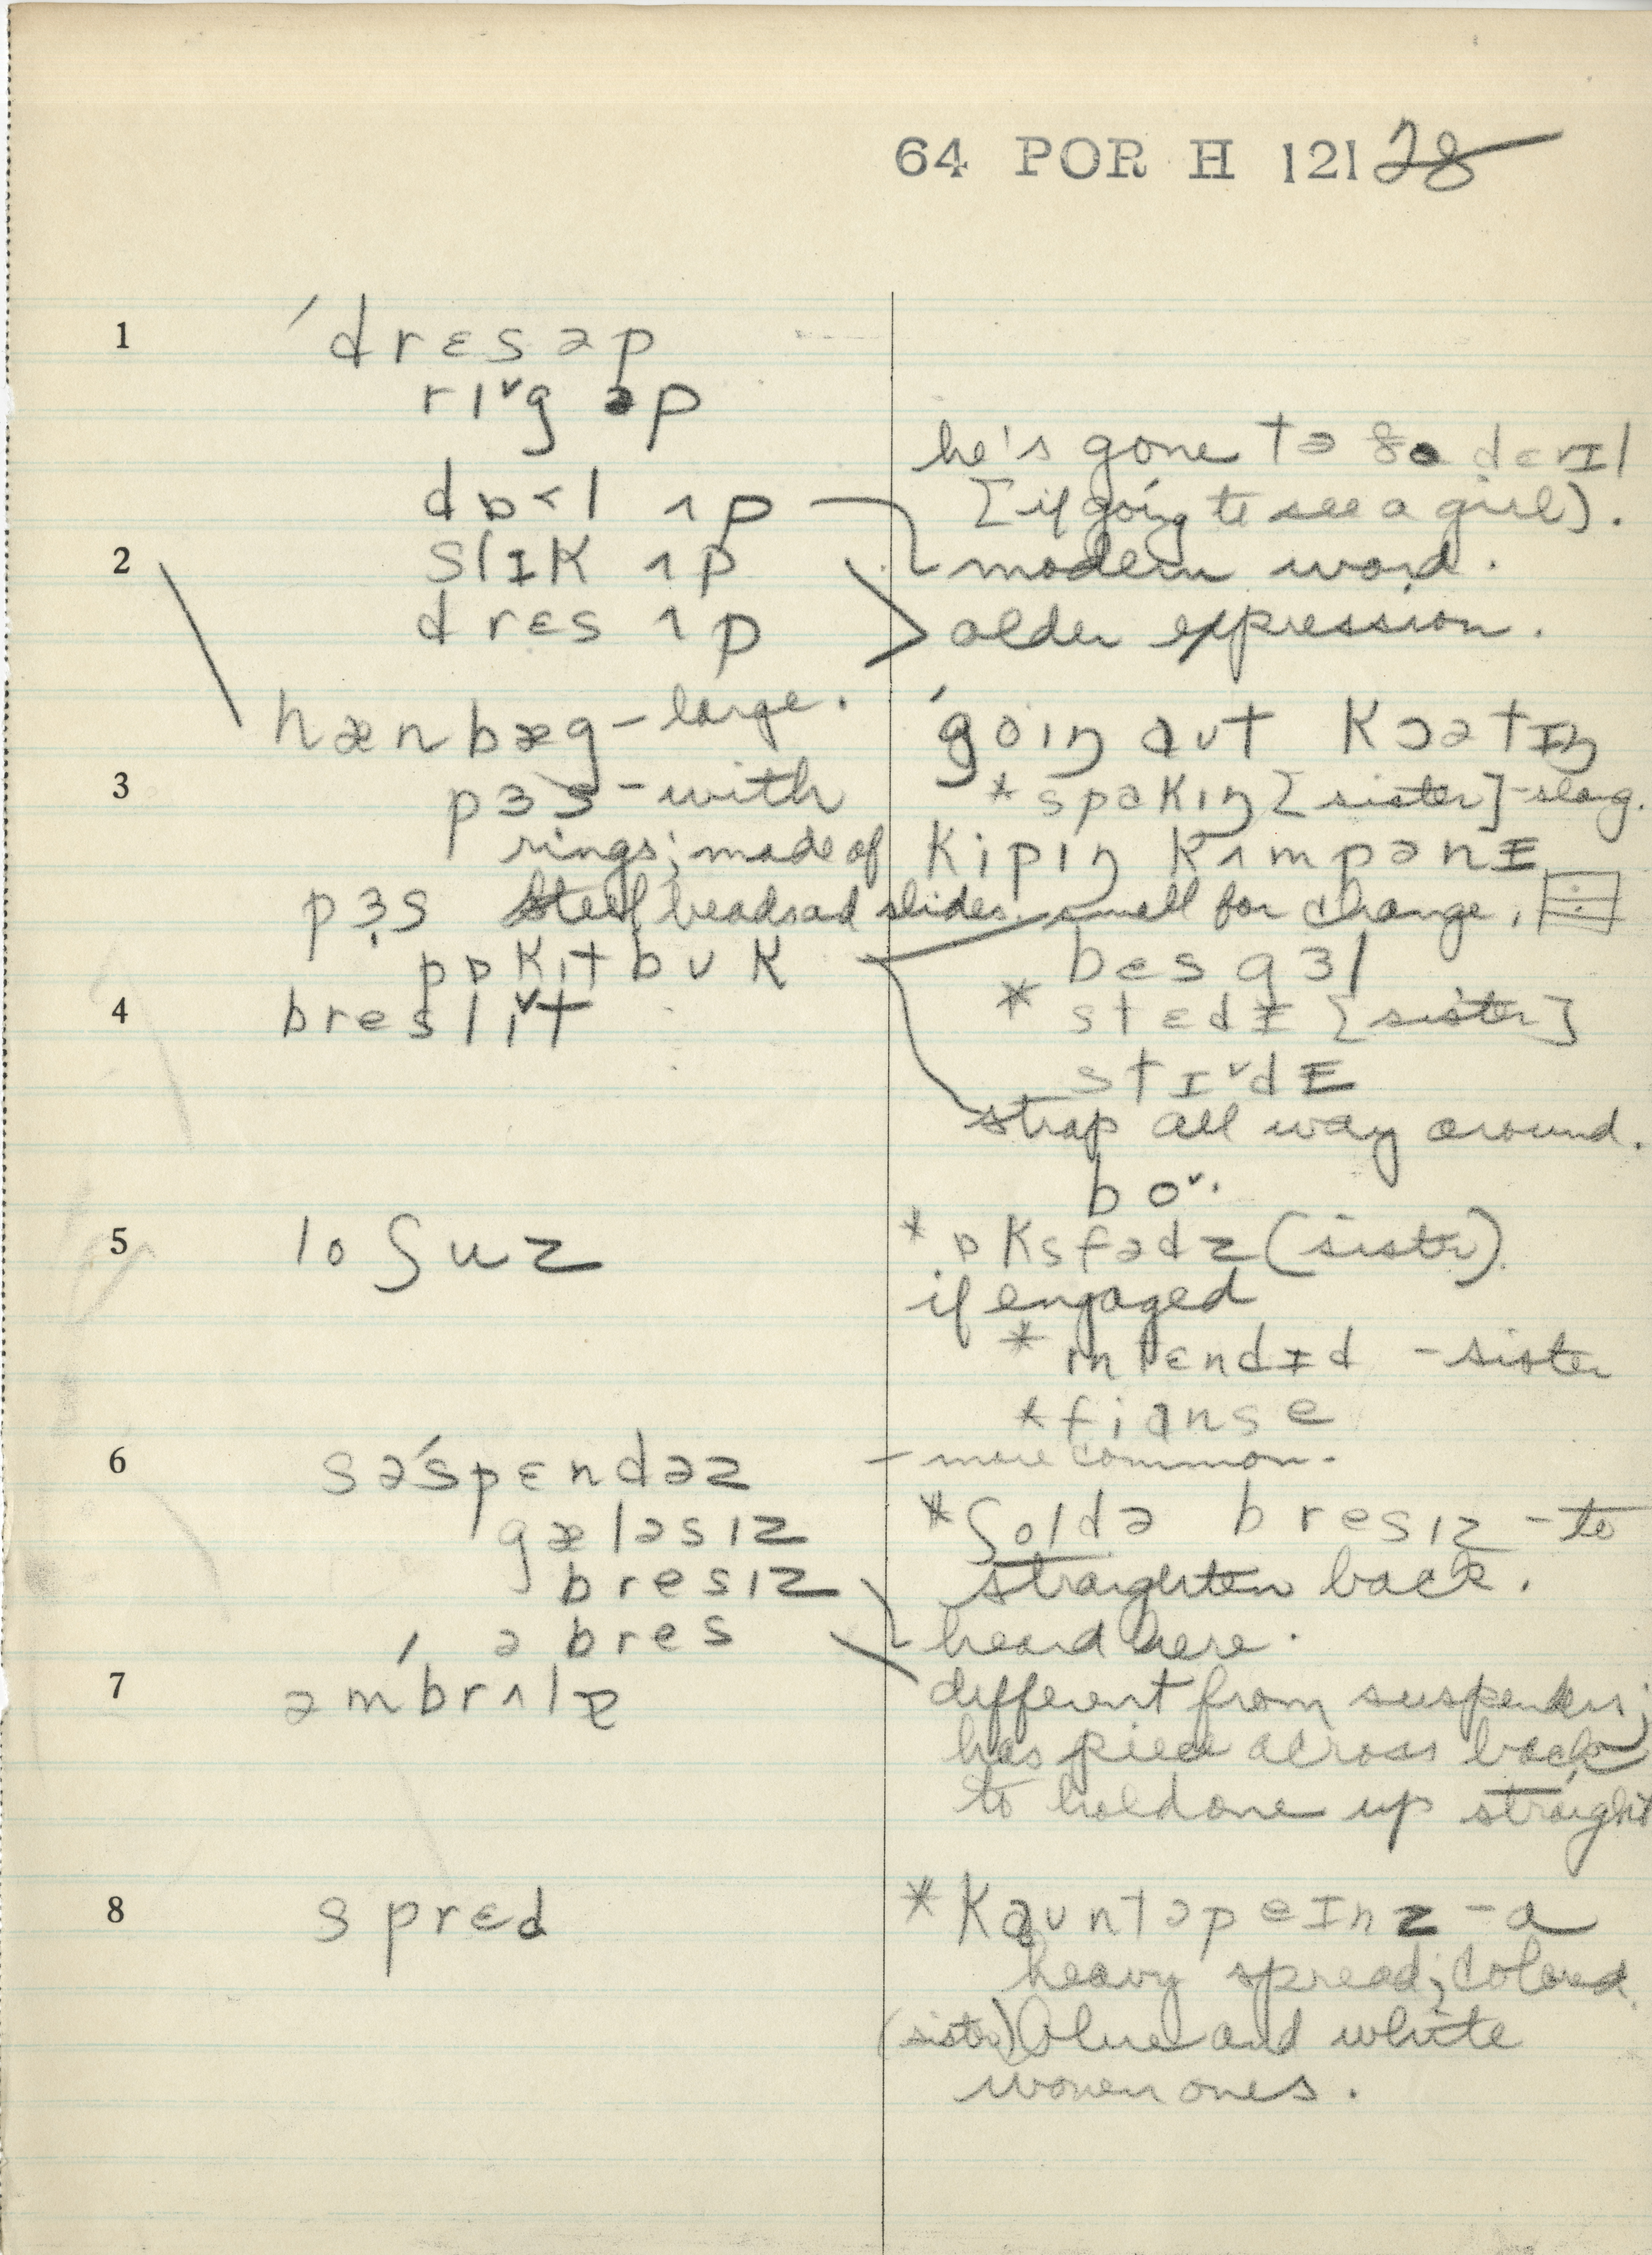 64 POR H 121 28
1 ˈdrɛsəp
rɪ˅g əp
he's gone tə ðə dɛvɪl
dɒ<l ʌp [if going to see a girl).
2 slɪk ʌp modern word.
drɛs ʌp older expression.
hænbæg – large. ˈgoɪŋ ɑʊt kɔətɪŋ
3 pɜs – with * spɑkɪŋ [sister] – slang.
rings; made of kipɪŋ kʌmpənɪ
pɜs steel beads and slides. small for change.
pɒkɪtbʊk bɛs gɜl
4 breslɪ˅t * stɛdɪ [sister]
stɪ˅dɪ
strap all way around.
bo˅.
5 lo ʃuz * ɒksfədz (sister).
if engaged
* ɪntɛndɪd – sister
* fiɑnse
6 səˈspɛndəz – more common.
gæləsɪz * ʃoldə bresɪz – to
bresɪz straighten back.
ə bres heard here.
7 əmˈbrʌlə different from suspenders;
has piece across back
to hold one up straight
8 sprɛd * kɑʊntəpeɪnz – a
heavy spread; colored.
(sister) blue and white
woven ones.